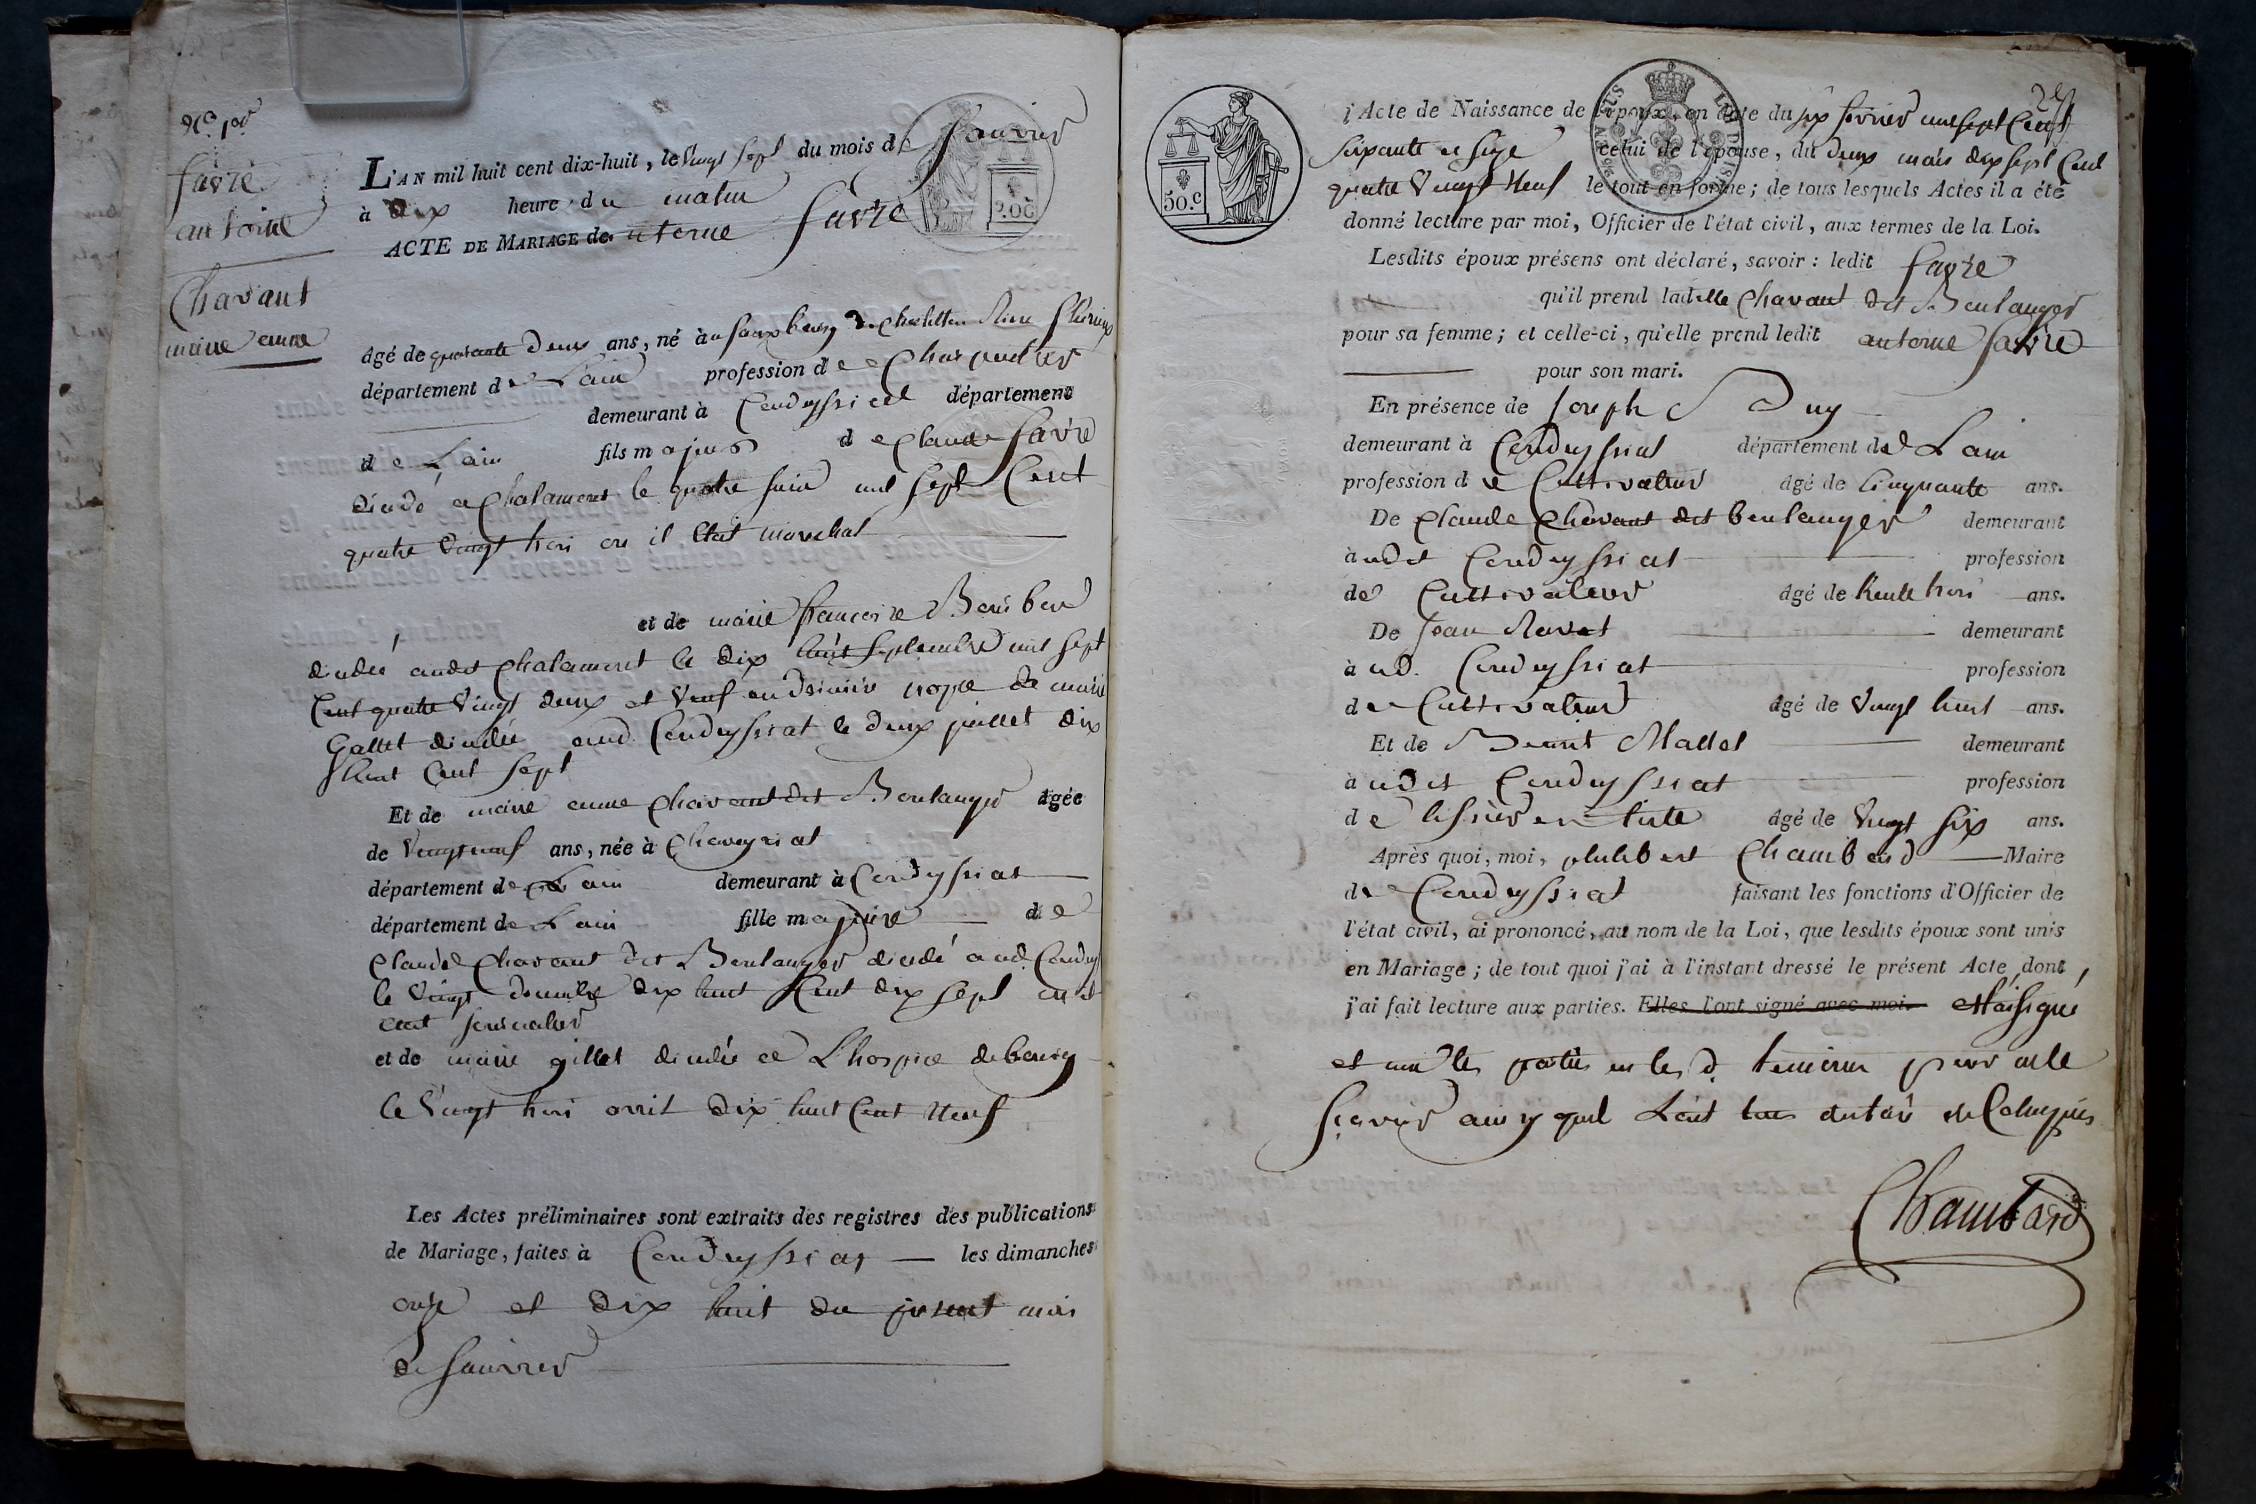 No 1er
favre
antoine
Chavant
marie anne
L'AN mil huit cent dix-huit, le vingt sept du mois de janvier
à dix heure du matin
ACTE DE MARIAGE de antoine favre
2.0c
âgé de quarante deux ans, né au faux bourg de Chatillon
département de Lain profession de Charpentier
demeurant à Condeyssiat département
de Lain fils majeur de Claude favre
décédé a Chalamont le quatre juin mil sept Cent
quatre vingt trois ou il Etait marechal
et de marie françoise
décédée audit Chalamont le dix huit Septembre mil sept
Cent quatre vingt deux et veuf en de marie
Gallet décédée aud. Condeyssiat le deux juillet dix
huit Cent Sept
Et de marie anne Chavant dit Boulanger âgée
de vingt neuf ans, née à Chaveyriat
département de Lain demeurant à Condeyssiat
département de Lain fille majeure de
Claude Chavant dit Boulanger décédé aud. Condey
le vingt dix huit Cent dix sept
journalier
et de marie gillet décédée a L'hospice de bourg
le vingt trois avril dix huit Cent Neuf
Les Actes préliminaires sont extraits des registres des publications
de Mariage, faites à Condeyssiat les dimanches
onze et dix huit du présent mois
de janvier
l'Acte de Naissance de l'époux, en date du six février mil sept Cent
soixante et seize celui de l'épouse, du deux mars dix sept Cent
quatre vingt Neuf le tout en forme; de tous lesquels Actes il a été
50.c
donné lecture par moi, Officier de l'état civil, aux termes de la Loi.
Lesdits époux présens ont déclaré, savoir: ledit favre
qu'il prend ladelle Chavant dit Boulanger
pour sa femme; et celle-ci, qu'elle prend ledit antoine favre
pour son mari.
En présence de Joseph Duy
demeurant à Condeyssiat département de Lain
profession de Cultivateur âgé de Cinquante ans.
De Claude Chavant dit boulanger demeurant
à udit Condeyssiat profession
de Cultivateur âgé de trente trois ans.
De Jean Ravet demeurant
à ud. Condeyssiat profession
de Cultivateur âgé de vingt huit ans.
Et de Benoit Mallet demeurant
à udit Condeyssiat profession
de tissier en toile âgé de vingt six ans.
Après quoi, moi, philibert Chambard Maire
de Condeyssiat faisant les fonctions d'Officier de
l'état civil, ai prononcé, au nom de la Loi, que lesdits époux sont unis
en Mariage; de tout quoi j'ai à l'instant dressé le présent Acte, dont
j'ai fait lecture aux parties. Elles l'ont signé avec moi. et l'ai signé
et non les parties ni les d. temoins pour ne le
scavoir ainsy quil L'ont tous declaré de Ce Requis
Chambard